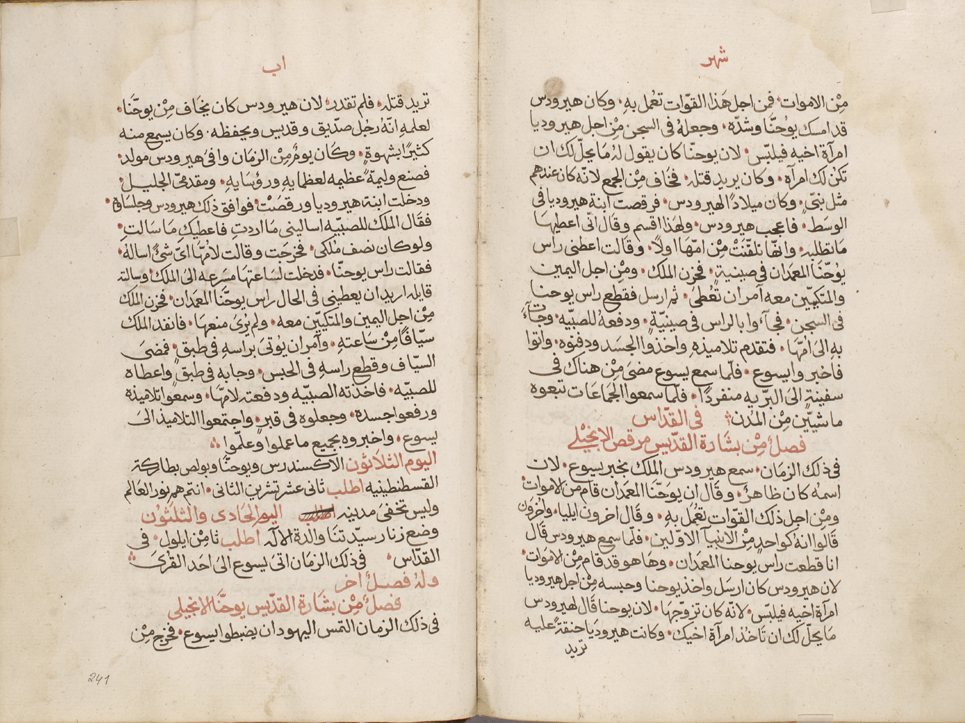 شهر
مِنْ الاموات۰ فمِن اجل هَذا القوّات تعْمل بهِ۰ وكان هيرودس
قد امسك يوُحنّا وشدّه۰ وجعلهُ في السجن مِنْ اجل هيروديا
امرآة اخيه فيلبّس۰ لان يوحنّا كان يقول لهُ مَا يحلّ لك ان
تكن لك امرآة۰ وكان يريد قتله۰ فخَاف مِنْ الجمع لانه كان عندهم
مثل نبّي۰ وكان ميلادًا لهيرودس۰ فرقصت ابنة هيروديا في
الوسط۰ فاعجب هيرودس۰ ولهذا اقسم وقال اني اعطيها
ما تطلبه۰ وانهّا تلقّنتْ مِنْ امّها اولاً۰ وقالت اعطني راس
يوُحنّا المعمدان في صينية۰ فحزن الملك۰ ومِنْ اجل اليمين
والمتكيّين معه آمر ان تُعْطى۰ ثم ارسل فقطع راس يوحنا
في السجن۰ فجآءوا بالراس في صينيّة۰ ودفعهُ للصبّيه۰ وجآءت
بهِ الى امّها۰ فتقدم تلاميذه۰ واخذوا الجسد ودفنوه۰ واتوا
فاخبروا يسوع۰ فلمّا سمع يسوع مضى مِنْ هناك في
سفينة الى البرّيه منفردًا۰ فلما سمعوا الجماعات تبعوه
ماشيّين مِنْ المدن۰ في القدّاس
فصلٌ مِنْ بشارة القدّيس مرقص الانجيلي
في ذلك الزمان۰ سمع هيرودس الملك بخبر يسوع۰ لان
اسمهُ كان ظاهرًا۰ وقال ان يوحنّا المعمدان قام من الاموات۰
ومِنْ اجل ذلك القوّات تعْمل بهِ۰ وقال اخرون ايليا۰ واخرون
قالوا انهُ كواحدٍ مِنْ الانبيآ الاوّلين۰ فلمّا سمع هيرودس قال
انا قطعت راس يوحنا المعمدان۰ وها هو قد قام مِنْ الاموات۰
لان هيرودس كان ارسل واخذ يوحنا وحبسه مِنْ اجل هيروديا
امرآة اخيه فيلبّس۰ لانّه كان تزوّجها۰ لان يوحنا قال لهيرودس
مَا يحلّ لك ان تاخذ امرآة اخيك۰ وكانت هيروديا حنقةٌ عليه
تريد
اب
تريد قتله۰ فلم تقدر۰ لان هيرودس كان يخَاف مِنْ يوحنّا۰
لعلمهِ انّهُ رجُل صدّيق وقديس ويحفظه۰ وكان يسمع منه
كثيرًا بشهوةٍ۰ وكَان يومٌ مِنْ الزمان وافى هيرودس مولد۰
فصنع وليمةً عظيمه لعظمايهِ ورؤسايهِ۰ ومقدمّي الجليل۰
ودخلت ابنة هيروديا ورقصَتْ۰ فوافق ذلك هيرودس وجلساؤه۰
فقال الملك للصبيّه اساليني مَا اردتِ فاعطيك مَا سالتِ۰
ولو كان نصف ملكي۰ فخرجت وقالت لامّها ايّ شئٍ اسالهُ۰
فقالت راس يوحنّا۰ فدخلت لسَاعتها مسرعه الى الملك وسالته
قايله اريد ان يعطيني في الحال راس يوحنّا المعمدان۰ فحزن الملك
مِنْ اجل اليمين والمتكيّين معه۰ ولم يرى منعها۰ فانفد الملك
سيّافًا مِنْ سَاعته۰ وآمر ان يوتى براسهِ في طبق۰ فمضى
السيّاف وقطع راسه في الحبس۰ وجابه في طبق واعطاه
للصبيّه۰ فاخذته الصبيّه ودفعته لامّها۰ وسمعوا تلاميذه
ورفعوا جسده۰ وجعلوه في قبر۰ واجتمعوا التلاميذ الى
يسوع۰ واخبروه بجميع ما عملوا وعلّموا
اليوم الثلاثون الاكسندرس ويوحنّا وبولص بطاركة
القسطنطينيه اطلب ثاني عشر تشرين الثاني۰ انتم هم نور العالم
وليس تخفى مدينه اليوم الحادي والثلثون
وضع زنار سيّدتنا والدة الاله اطلب ثامن ايلول۰ في
القدّاس۰ في ذلك الزمان اتى يسوع الى احد القرى
وله فصلٌ اخر
فصلٌ مِنْ بشارة القدّيس يوحنّا الانجيلي
في ذلك الزمان التمس اليهود ان يضبطوا يسوع۰ فخرج مِنْ
241